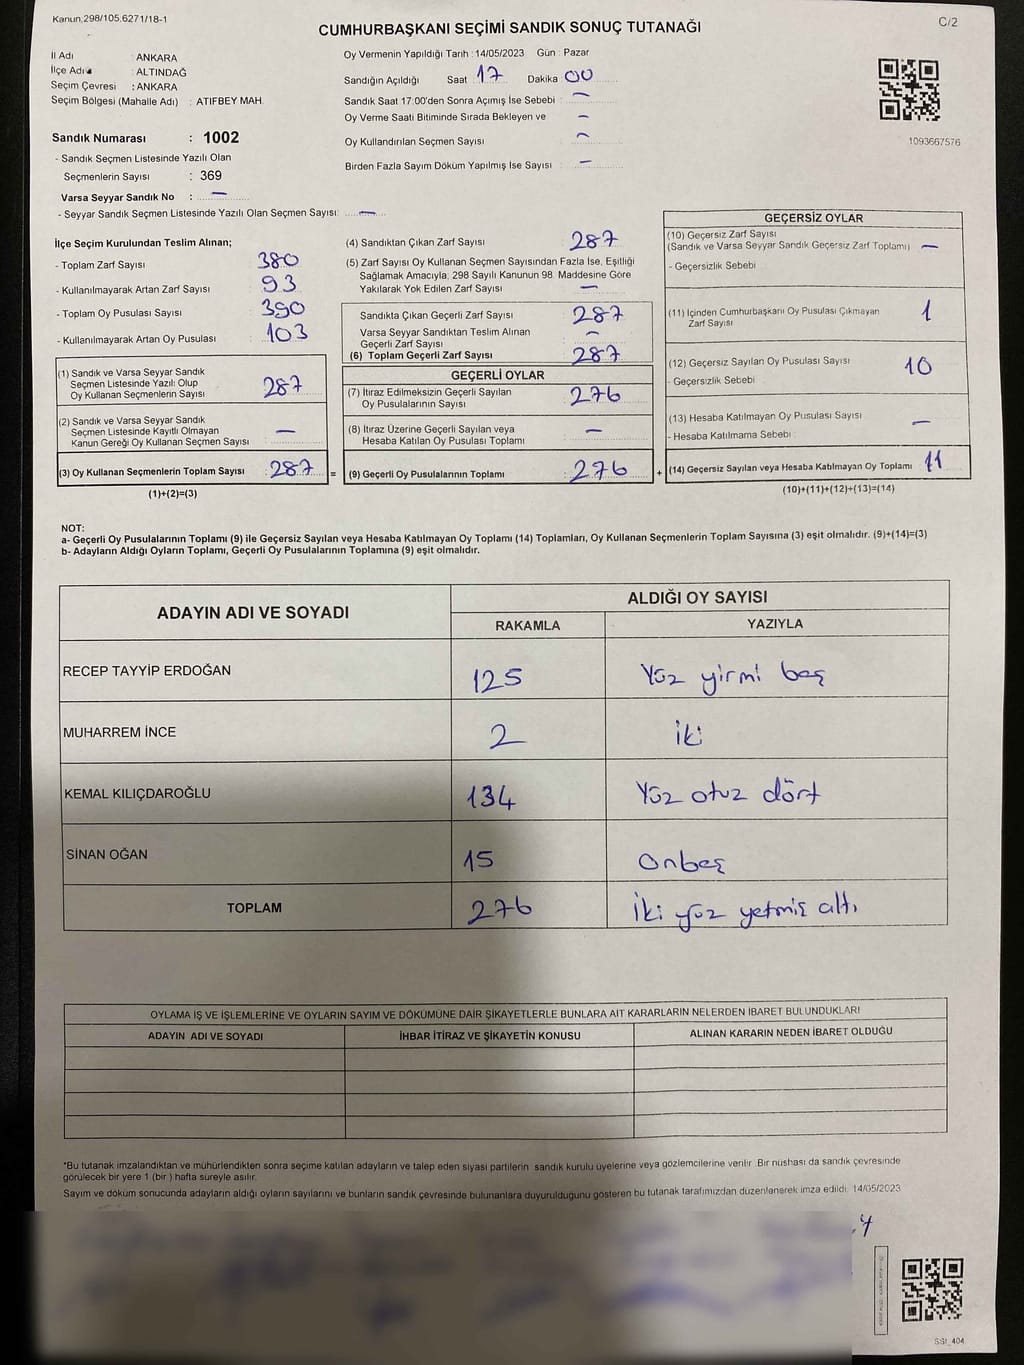 Kanun,298/105.6271/18-1
C/2
CUMHURBAŞKANI SEÇİMİ SANDIK SONUÇ TUTANAĞI
İl Adı : ANKARA
İlçe Adı : ALTINDAĞ
Seçim Çevresi : ANKARA
Seçim Bölgesi (Mahalle Adı) : ATIFBEY MAH.
Sandık Numarası : 1002
- Sandık Seçmen Listesinde Yazılı Olan
Seçmenlerin Sayısı : 369
Varsa Seyyar Sandık No : —
- Seyyar Sandık Seçmen Listesinde Yazılı Olan Seçmen Sayısı: —
Oy Vermenin Yapıldığı Tarih : 14/05/2023 Gün : Pazar
Sandığın Açıldığı Saat 17 Dakika 00
Sandık Saat 17:00'den Sonra Açımış İse Sebebi : —
Oy Verme Saati Bitiminde Sırada Bekleyen ve —
Oy Kullandırılan Seçmen Sayısı —
Birden Fazla Sayım Döküm Yapılmış İse Sayısı : —
1093667576
İlçe Seçim Kurulundan Teslim Alınan;
- Toplam Zarf Sayısı 380
- Kullanılmayarak Artan Zarf Sayısı 93
- Toplam Oy Pusulası Sayısı 390
- Kullanılmayarak Artan Oy Pusulası 103
(1) Sandık ve Varsa Seyyar Sandık
Seçmen Listesinde Yazılı Olup
Oy Kullanan Seçmenlerin Sayısı 287
(2) Sandık ve Varsa Seyyar Sandık
Seçmen Listesinde Kayıtlı Olmayan
Kanun Gereği Oy Kullanan Seçmen Sayısı —
(3) Oy Kullanan Seçmenlerin Toplam Sayısı 287 =
(1)+(2)=(3)
(4) Sandıktan Çıkan Zarf Sayısı 287
(5) Zarf Sayısı Oy Kullanan Seçmen Sayısından Fazla İse, Eşitliği
Sağlamak Amacıyla, 298 Sayılı Kanunun 98. Maddesine Göre
Yakılarak Yok Edilen Zarf Sayısı —
Sandıkta Çıkan Geçerli Zarf Sayısı 287
Varsa Seyyar Sandıktan Teslim Alınan
Geçerli Zarf Sayısı —
(6) Toplam Geçerli Zarf Sayısı 287
GEÇERLİ OYLAR
(7) İtiraz Edilmeksizin Geçerli Sayılan
Oy Pusulalarının Sayısı 276
(8) İtiraz Üzerine Geçerli Sayılan veya
Hesaba Katılan Oy Pusulası Toplamı —
(9) Geçerli Oy Pusulalarının Toplamı 276 +
GEÇERSİZ OYLAR
(10) Geçersiz Zarf Sayısı
(Sandık ve Varsa Seyyar Sandık Geçersiz Zarf Toplamı) —
- Geçersizlik Sebebi
(11) İçinden Cumhurbaşkanı Oy Pusulası Çıkmayan
Zarf Sayısı 1
(12) Geçersiz Sayılan Oy Pusulası Sayısı 10
- Geçersizlik Sebebi
(13) Hesaba Katılmayan Oy Pusulası Sayısı —
- Hesaba Katılmama Sebebi
(14) Geçersiz Sayılan veya Hesaba Katılmayan Oy Toplamı 11
(10)+(11)+(12)+(13)=(14)
NOT:
a- Geçerli Oy Pusulalarının Toplamı (9) ile Geçersiz Sayılan veya Hesaba Katılmayan Oy Toplamı (14) Toplamları, Oy Kullanan Seçmenlerin Toplam Sayısına (3) eşit olmalıdır. (9)+(14)=(3)
b- Adayların Aldığı Oyların Toplamı, Geçerli Oy Pusulalarının Toplamına (9) eşit olmalıdır.
ADAYIN ADI VE SOYADI
ALDIĞI OY SAYISI
RAKAMLA YAZIYLA
RECEP TAYYİP ERDOĞAN 125 Yüz yirmi beş
MUHARREM İNCE 2 iki
KEMAL KILIÇDAROĞLU 134 Yüz otuz dört
SİNAN OĞAN 15 Onbeş
TOPLAM 276 İki yüz yetmiş altı
OYLAMA İŞ VE İŞLEMLERİNE VE OYLARIN SAYIM VE DÖKÜMÜNE DAİR ŞİKAYETLERLE BUNLARA AİT KARARLARIN NELERDEN İBARET BULUNDUKLARI
ADAYIN ADI VE SOYADI İHBAR İTİRAZ VE ŞİKAYETİN KONUSU ALINAN KARARIN NEDEN İBARET OLDUĞU
*Bu tutanak imzalandıktan ve mühürlendikten sonra seçime katılan adayların ve talep eden siyasi partilerin sandık kurulu üyelerine veya gözlemcilerine verilir. Bir nüshası da sandık çevresinde
görülecek bir yere 1 (bir) hafta süreyle asılır.
Sayım ve döküm sonucunda adayların aldığı oyların sayılarını ve bunların sandık çevresinde bulunanlara duyurulduğunu gösteren bu tutanak tarafımızdan düzenlenerek imza edildi. 14/05/2023
SSI_404